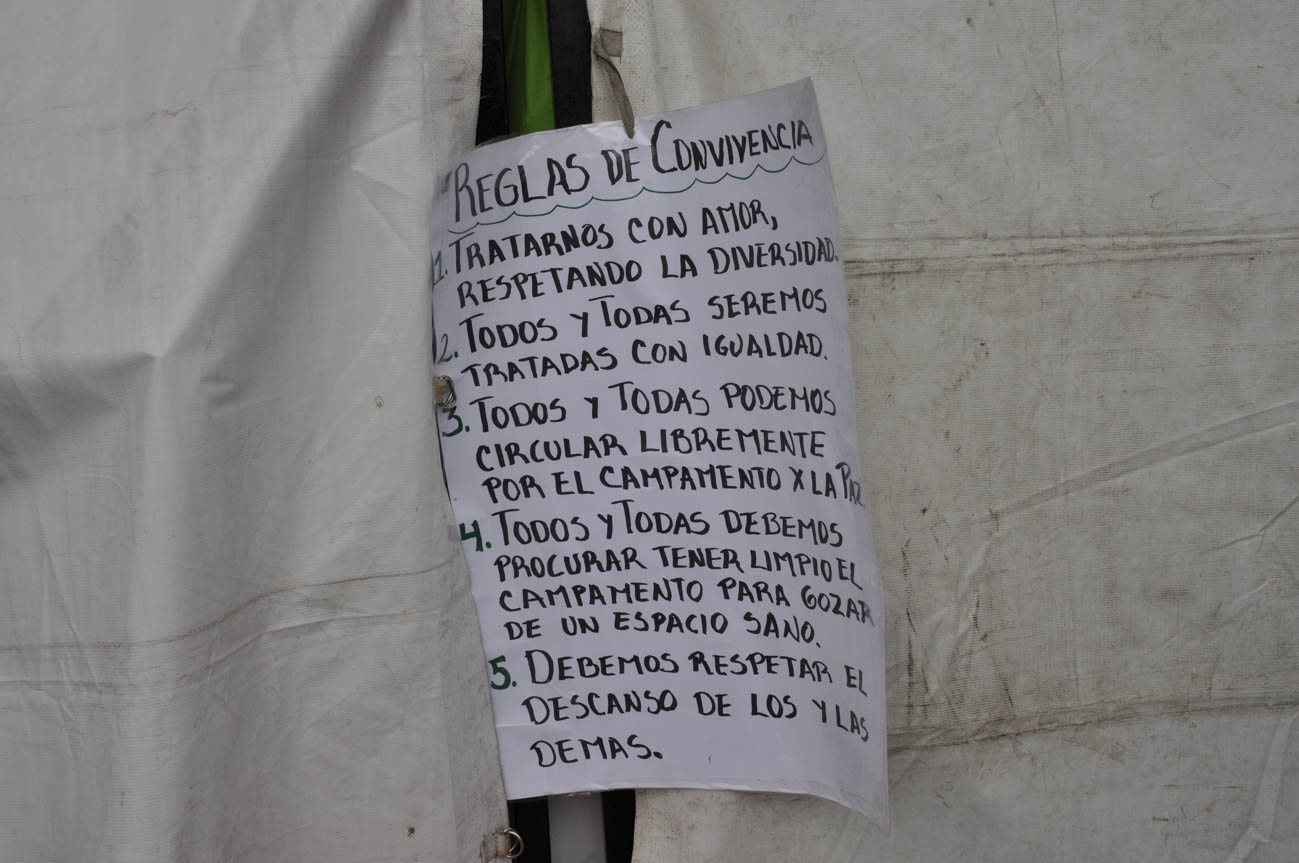 "REGLAS DE CONVIVENCIA
1. TRATARNOS CON AMOR,
RESPETANDO LA DIVERSIDAD.
2. TODOS Y TODAS SEREMOS
TRATADAS CON IGUALDAD.
3. TODOS Y TODAS PODEMOS
CIRCULAR LIBREMENTE
POR EL CAMPAMENTO X LA PAZ.
4. TODOS Y TODAS DEBEMOS
PROCURAR TENER LIMPIO EL
CAMPAMENTO PARA GOZAR
DE UN ESPACIO SANO.
5. DEBEMOS RESPETAR EL
DESCANSO DE LOS Y LAS
DEMAS.